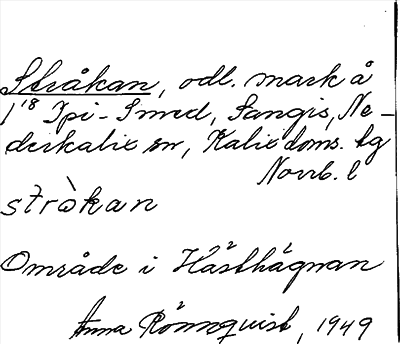 Stråkan, odl. mark å
1¹⁸ Ypi-Smed, Sangis, Ne-
derkalix sn, Kalix doms. tg
Norrb. l
stràkan
Område i Hästhägnan
Anna Rönnquist, 1949